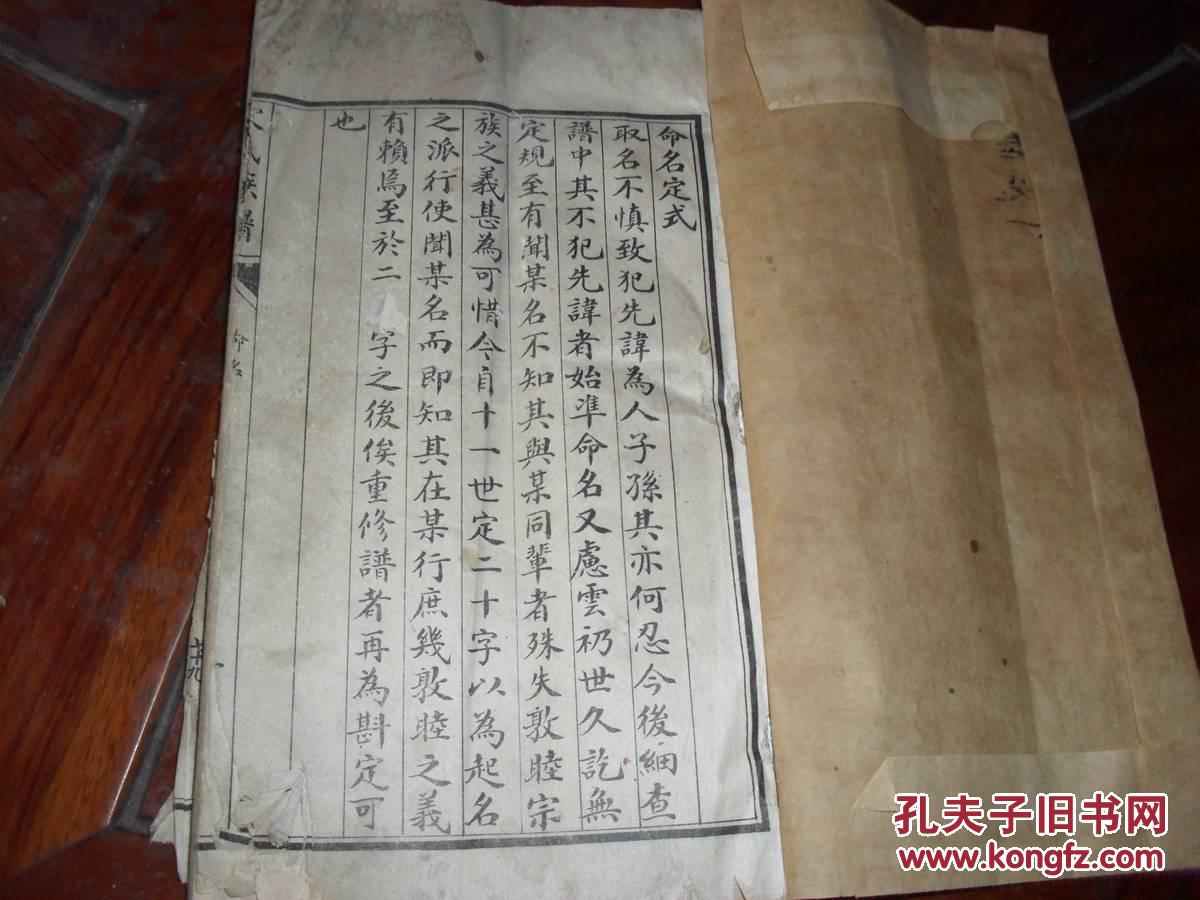 命名定式
取名不慎致犯先諱為人子孫其亦何忍今後細查
譜中其不犯先諱者始準命名又慮雲礽世久訖無
定規至有聞某名不知其與某同輩者殊失敦睦宗
族之義甚為可惜今自十一世定二十字以為起名
之派行使聞某名而即知其在某行庶幾敦睦之義
有賴焉至於二 字之後俟重修譜者再為斟定可
也
氏族譜
命名
孔夫子旧书网
www.kongfz.com